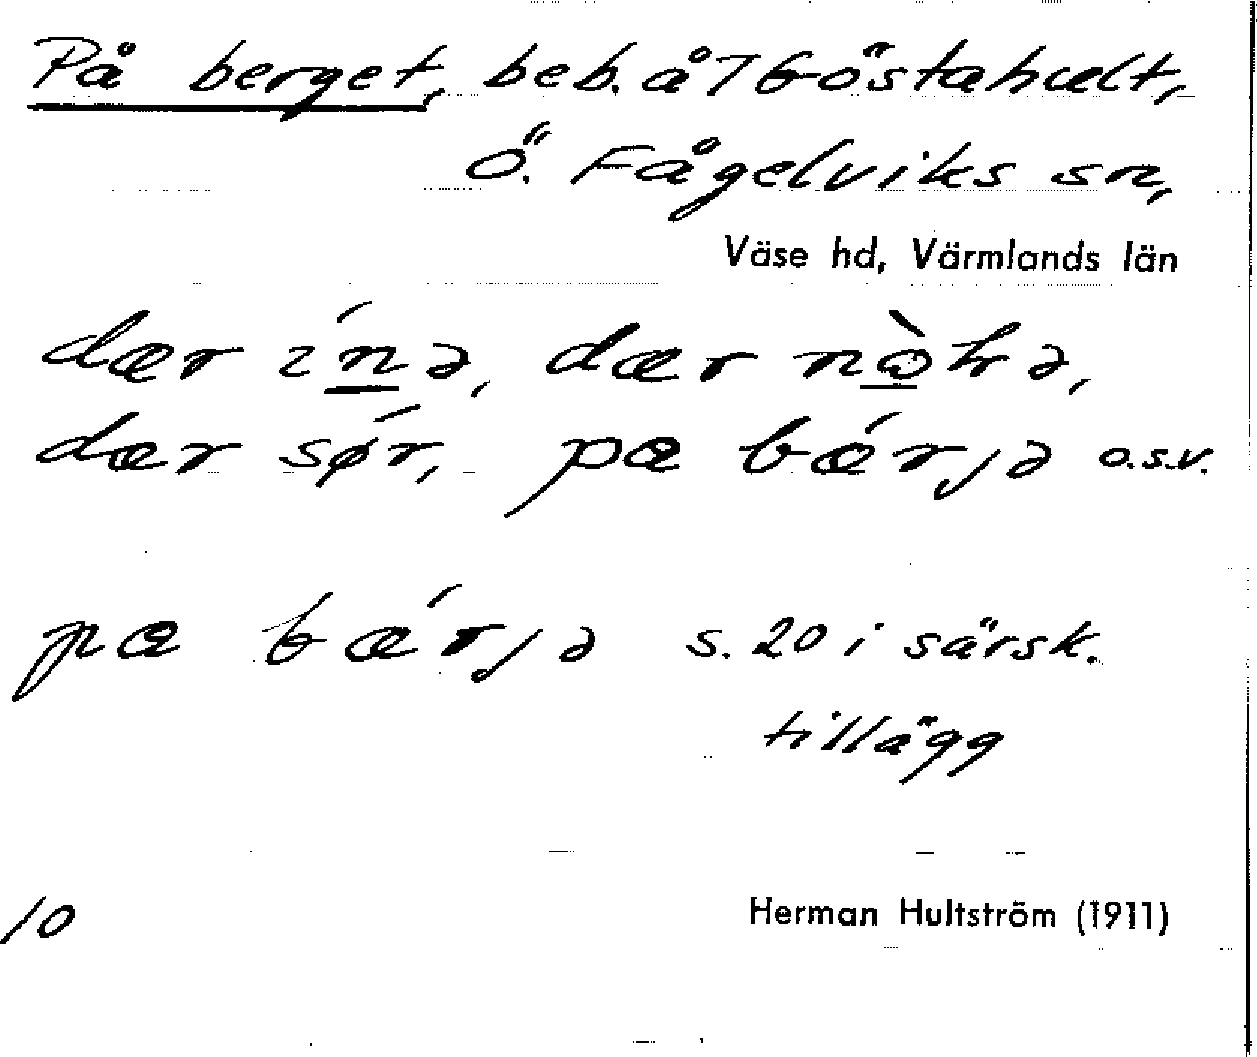 På berget, beb. å 7 Göstahult,
Ö. Fågelviks sn,
Väse hd, Värmlands län
dær ínə, dær nòhə,
dær sǿr, pæ bǽrjə o.s.v.
pæ bǽrjə s. 20 i särsk.
tillägg
10
Herman Hultström (1911)